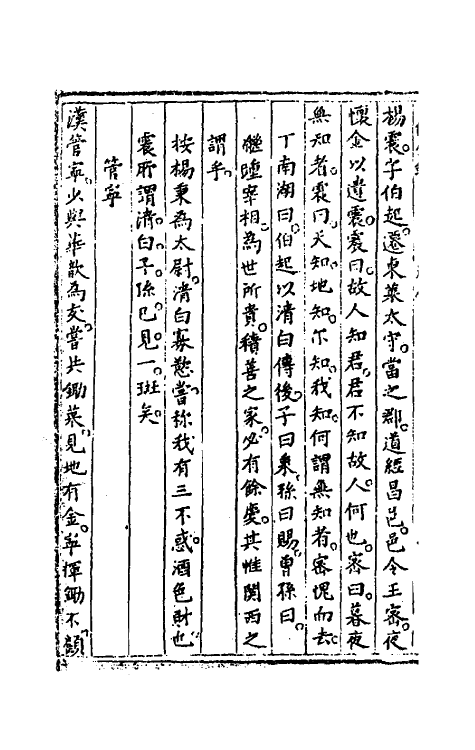 楊震。字伯起。遷東萊太守。當之郡。道經昌邑。邑令王密。夜
懷金以遺震。震曰。故人知君。君不知故人。何也。密曰。暮夜
無知者。震曰。天知。地知。尔知。我知。何謂無知者。密愧而去。
丁南湖曰。伯起以清白傳後。子曰秉。孫曰賜。曾孫曰。
繼踵宰相。為世所貴。積善之家。必有餘慶。其惟関西之
謂乎。
按楊秉為太尉。清白寡慾。嘗称我有三不惑。酒色財也。
震所謂清白子孫。已見一斑矣。
管寧
漢管寧。少與華歆為友。嘗共鋤菜。見地有金。寧揮鋤不顧。